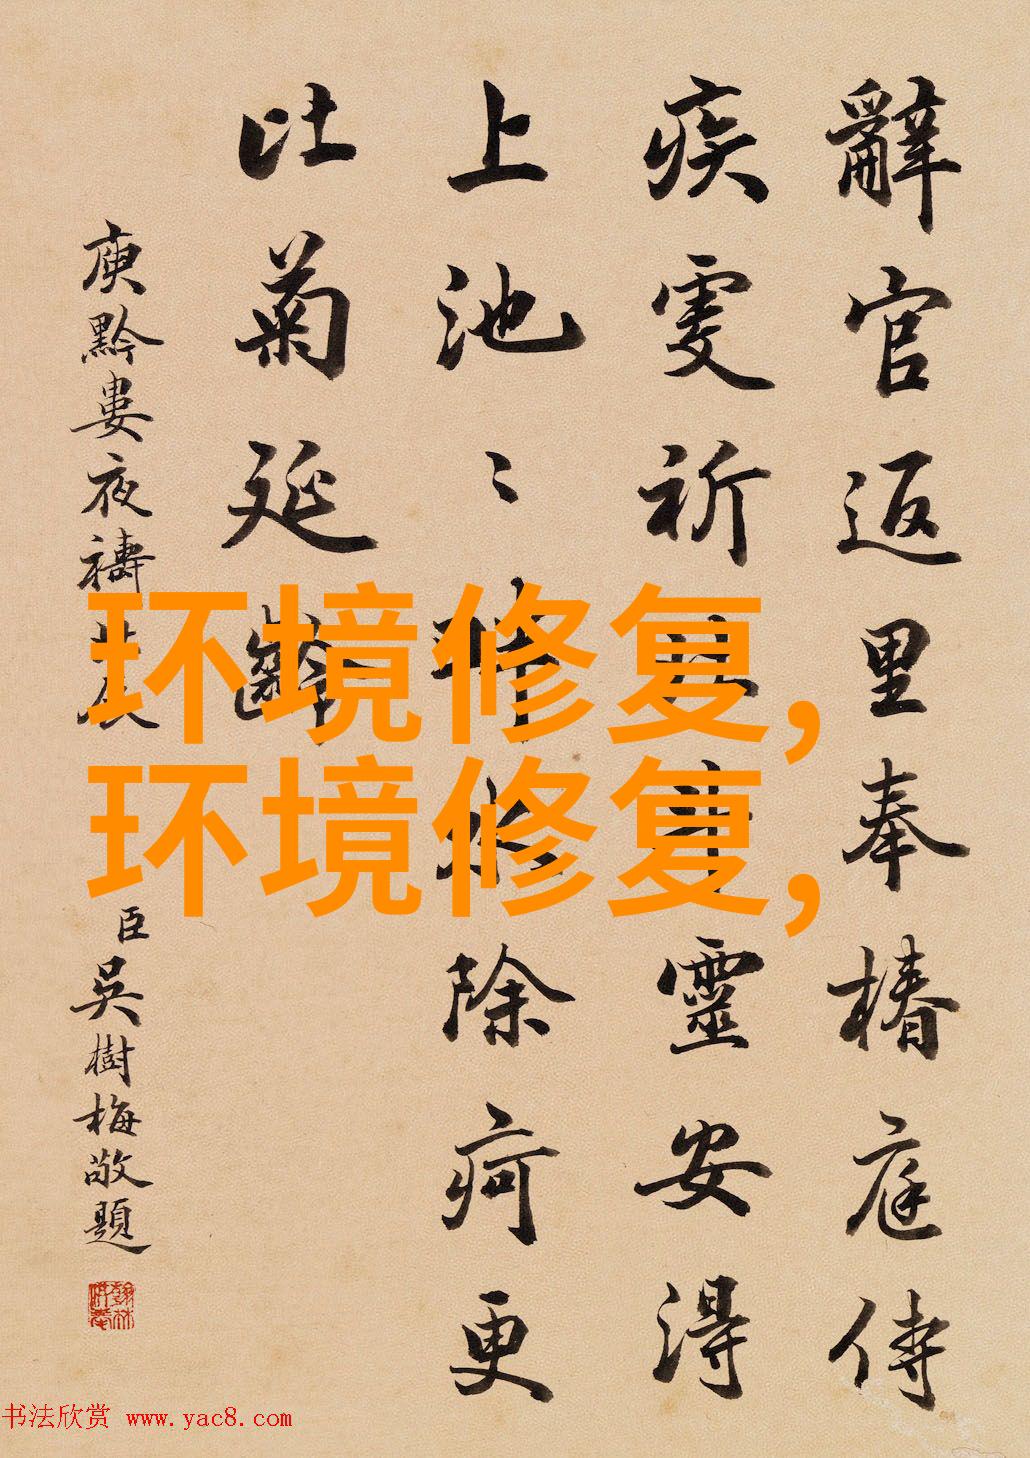 辭官返里奉椿庭侍
疾雯祈北斗靈安得
上池〻畔水除疴更
吐菊延齡
庾黔婁夜禱北辰
臣吳樹梅敬題
环境修复,
环境修复,
书法欣赏 www.yac8.com